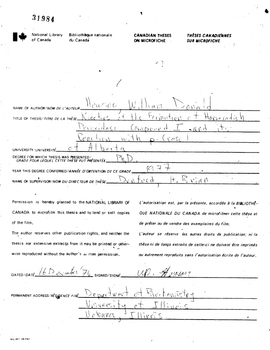 31984
National Library of Canada
Bibliothèque nationale du Canada
CANADIAN THESES ON MICROFICHE
THÈSES CANADIENNES SUR MICROFICHE
NAME OF AUTHOR/NOM DE L'AUTEUR William Donald
TITLE OF THESIS/TITRE DE LA THÈSE Studies of the Formation of Horseradish
Peroxidase Compound I and its
Reaction with p-Cresol
UNIVERSITY/UNIVERSITÉ of Alberta
DEGREE FOR WHICH THESIS WAS PRESENTED/
GRADE POUR LEQUEL CETTE THÈSE FUT PRÉSENTÉE Ph.D.
YEAR THIS DEGREE CONFERRED/ANNÉE D'OBTENTION DE CE GRADE 1977
NAME OF SUPERVISOR/NOM DU DIRECTEUR DE THÈSE Dunford, H. Brian
Permission is hereby granted to the NATIONAL LIBRARY OF
CANADA to microfilm this thesis and to lend or sell copies
of the film.
The author reserves other publication rights, and neither the
thesis nor extensive extracts from it may be printed or other-
wise reproduced without the author's written permission.
L'autorisation est, par la présente, accordée à la BIBLIOTHÈ-
QUE NATIONALE DU CANADA de microfilmer cette thèse et
de prêter ou de vendre des exemplaires du film.
L'auteur se réserve les autres droits de publication; ni la
thèse ni de longs extraits de celle-ci ne doivent être imprimés
ou autrement reproduits sans l'autorisation écrite de l'auteur.
DATED/DATÉ 16 December '76 SIGNED/SIGNÉ
PERMANENT ADDRESS/RÉSIDENCE FIXE Department of Biochemistry
University of Illinois
Urbana, Illinois